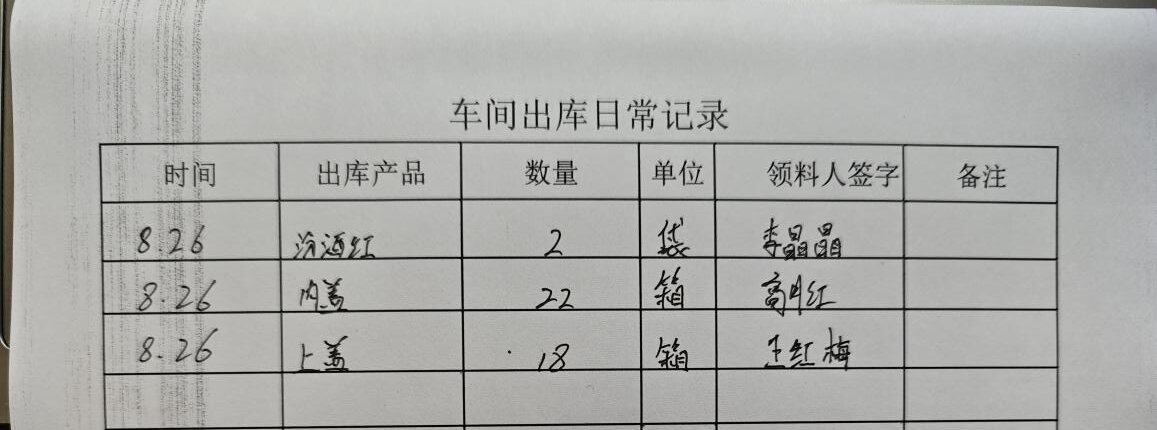 车间出库日常记录
时间 出库产品 数量 单位 领料人签字 备注
8.26 汾酒红 2 袋 李晶晶
8.26 内盖 22 箱 高月红
8.26 上盖 18 箱 王红梅